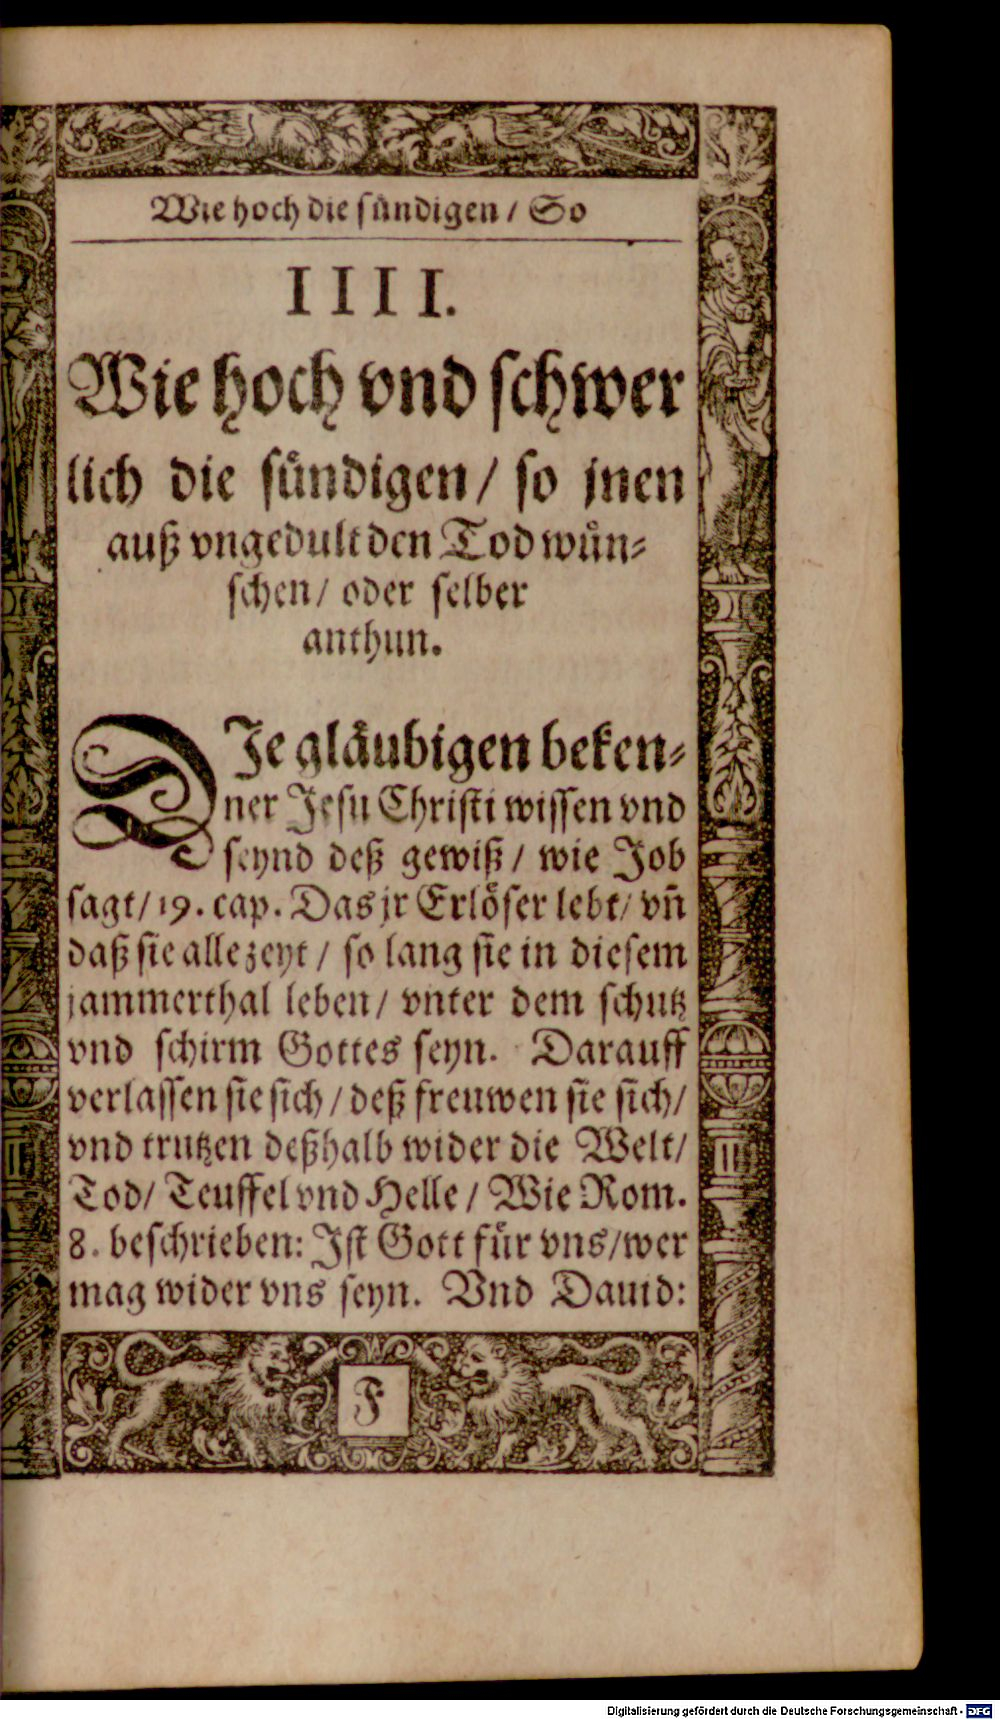 Wie hoch die sündigen / So
IIII.
Wie hoch vnd schwer
lich die sündigen / so jnen
auß vngedult den Tod wün⸗
schen / oder selber
anthun.
DJe gläubigen beken⸗
ner Jesu Christi wissen vnd
seynd deß gewiß / wie Job
sagt / 19. cap. Das jr Erlöser lebt / vñ
daß sie allezeyt / so lang sie in diesem
jammerthal leben / vnter dem schutz
vnd schirm Gottes seyn. Darauff
verlassen sie sich / deß freuwen sie sich /
vnd trutzen deßhalb wider die Welt /
Tod / Teuffel vnd Helle / Wie Rom.
8. beschrieben: Jst Gott für vns / wer
mag wider vns seyn. Vnd Dauid:
F
Digitalisierung gefördert durch die Deutsche Forschungsgemeinschaft - DFG